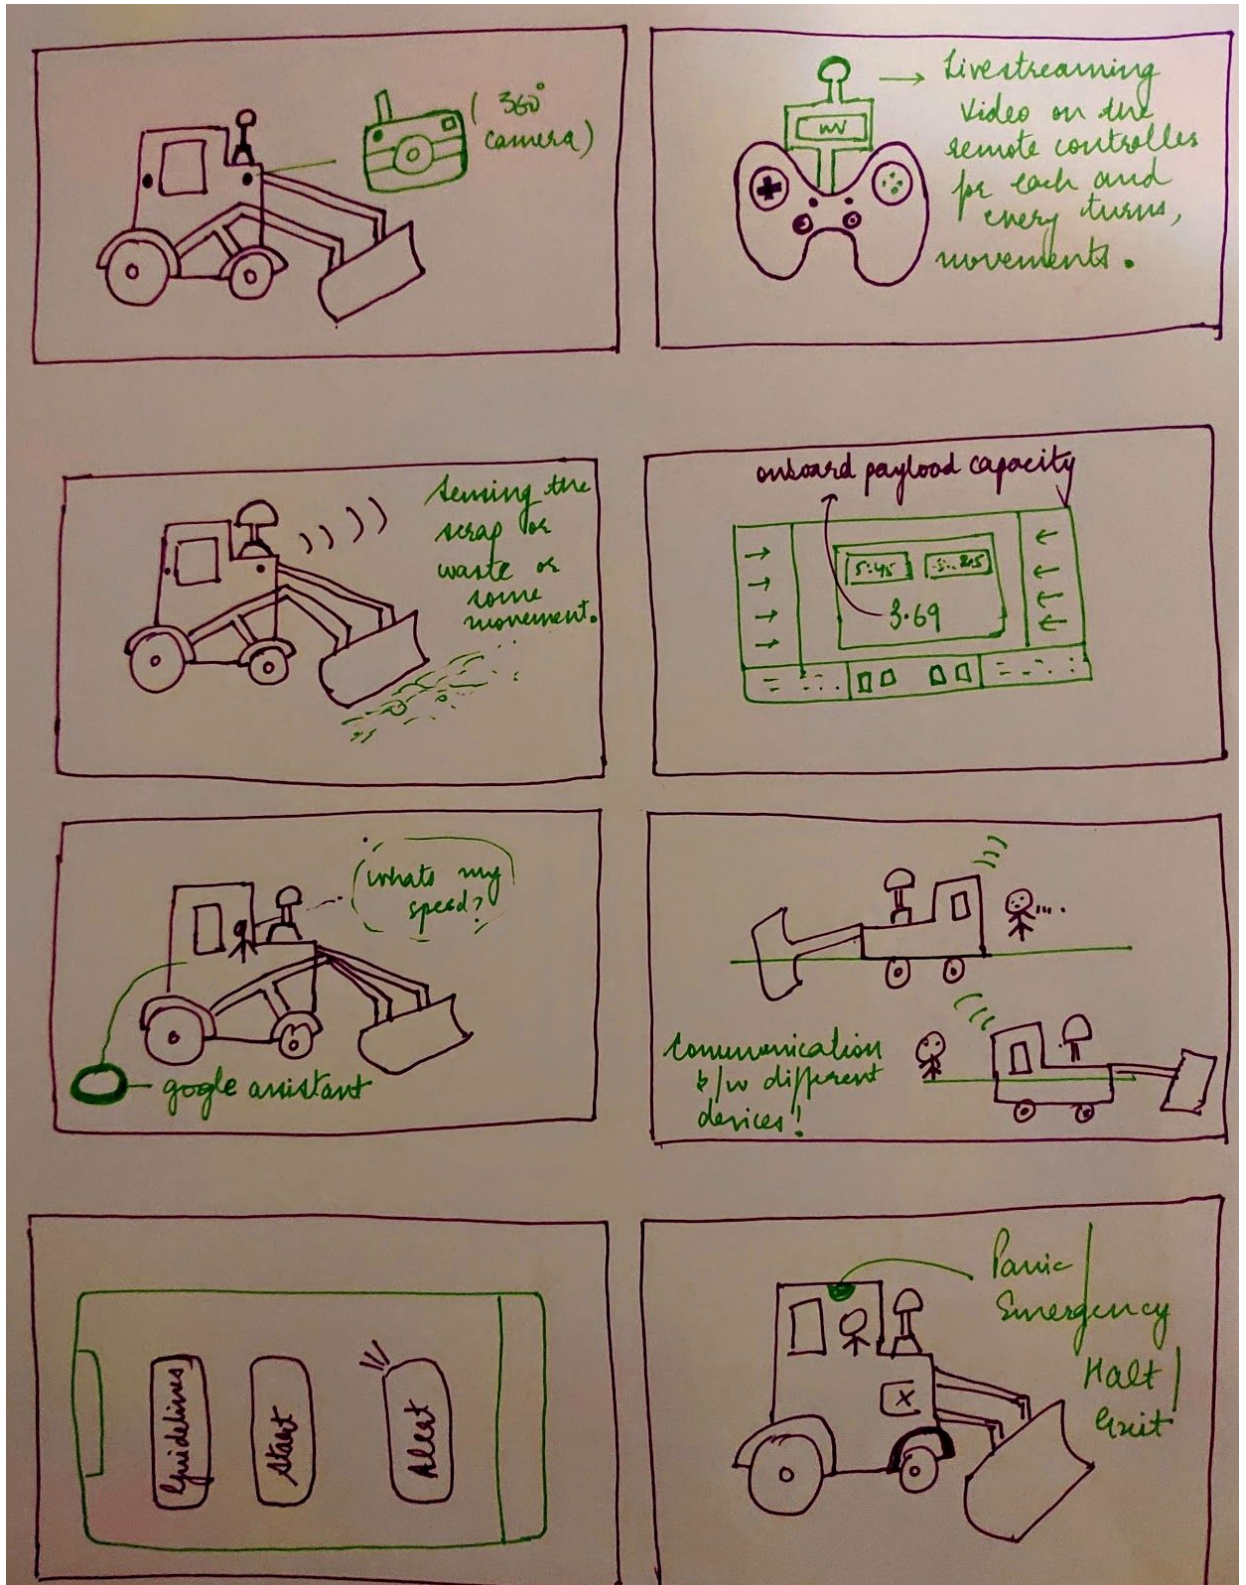 ( 360°
camera)
→ Livestreaming
Video on the
remote controller
for each and
every turns,
movements.
Sensing the
scrap or
waste or
some
movement.
onboard payload capacity
5:45
3.69
whats my
speed?
gogle assistant
Communication
b/w different
devices!
Guidelines
Start
Alert
Panic/
Emergency
Halt/
X